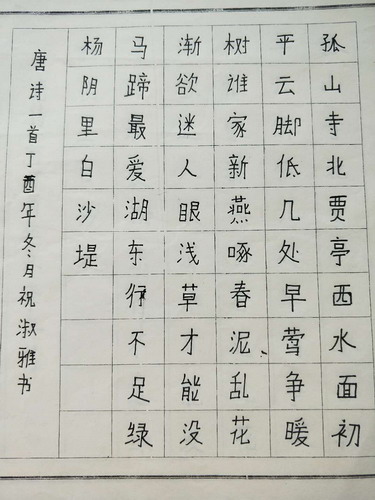 孤山寺北贾亭西水面初
平云脚低几处早莺争暖
树谁家新燕啄春泥、乱花
渐欲迷人眼浅草才能没
马蹄最爱湖东行不足绿
杨阴里白沙堤
唐诗一首丁酉年冬月祝淑雅书